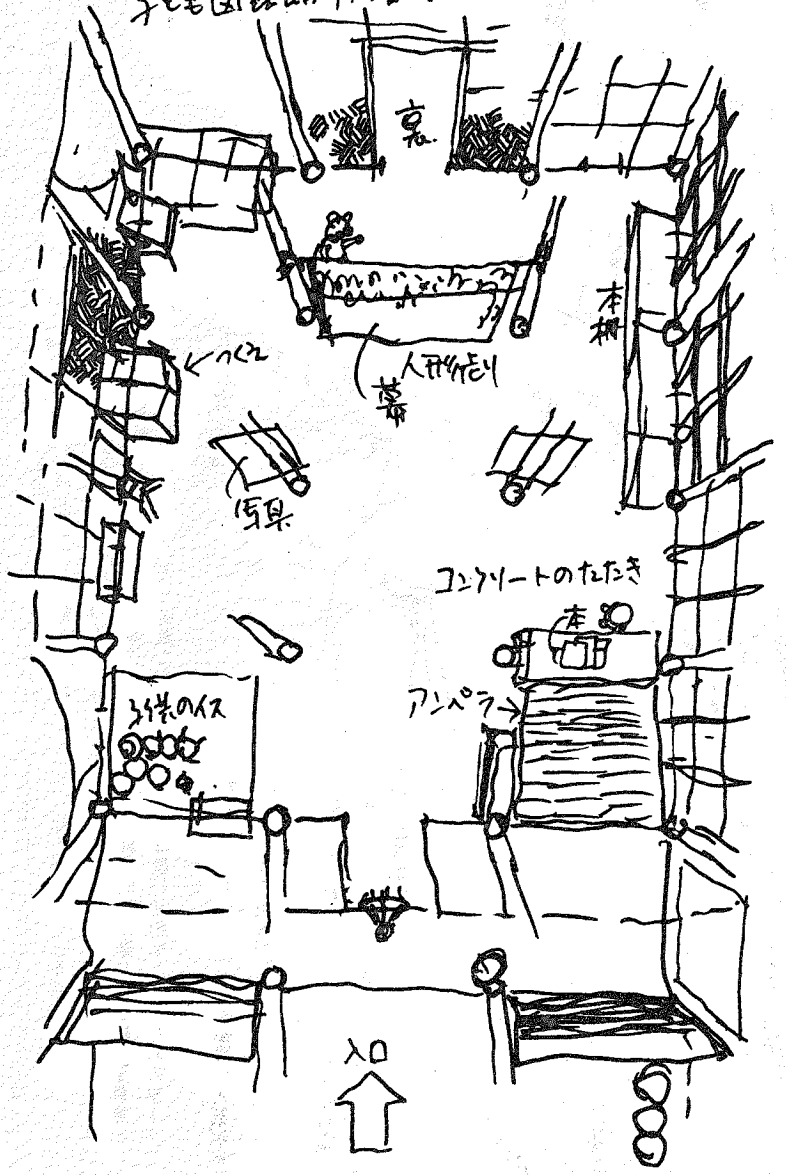 子ども図書館
裏
本棚
つくえ
人形
幕
写真
コンクリートのたたき
本
アンペラ
子供のイス
入口